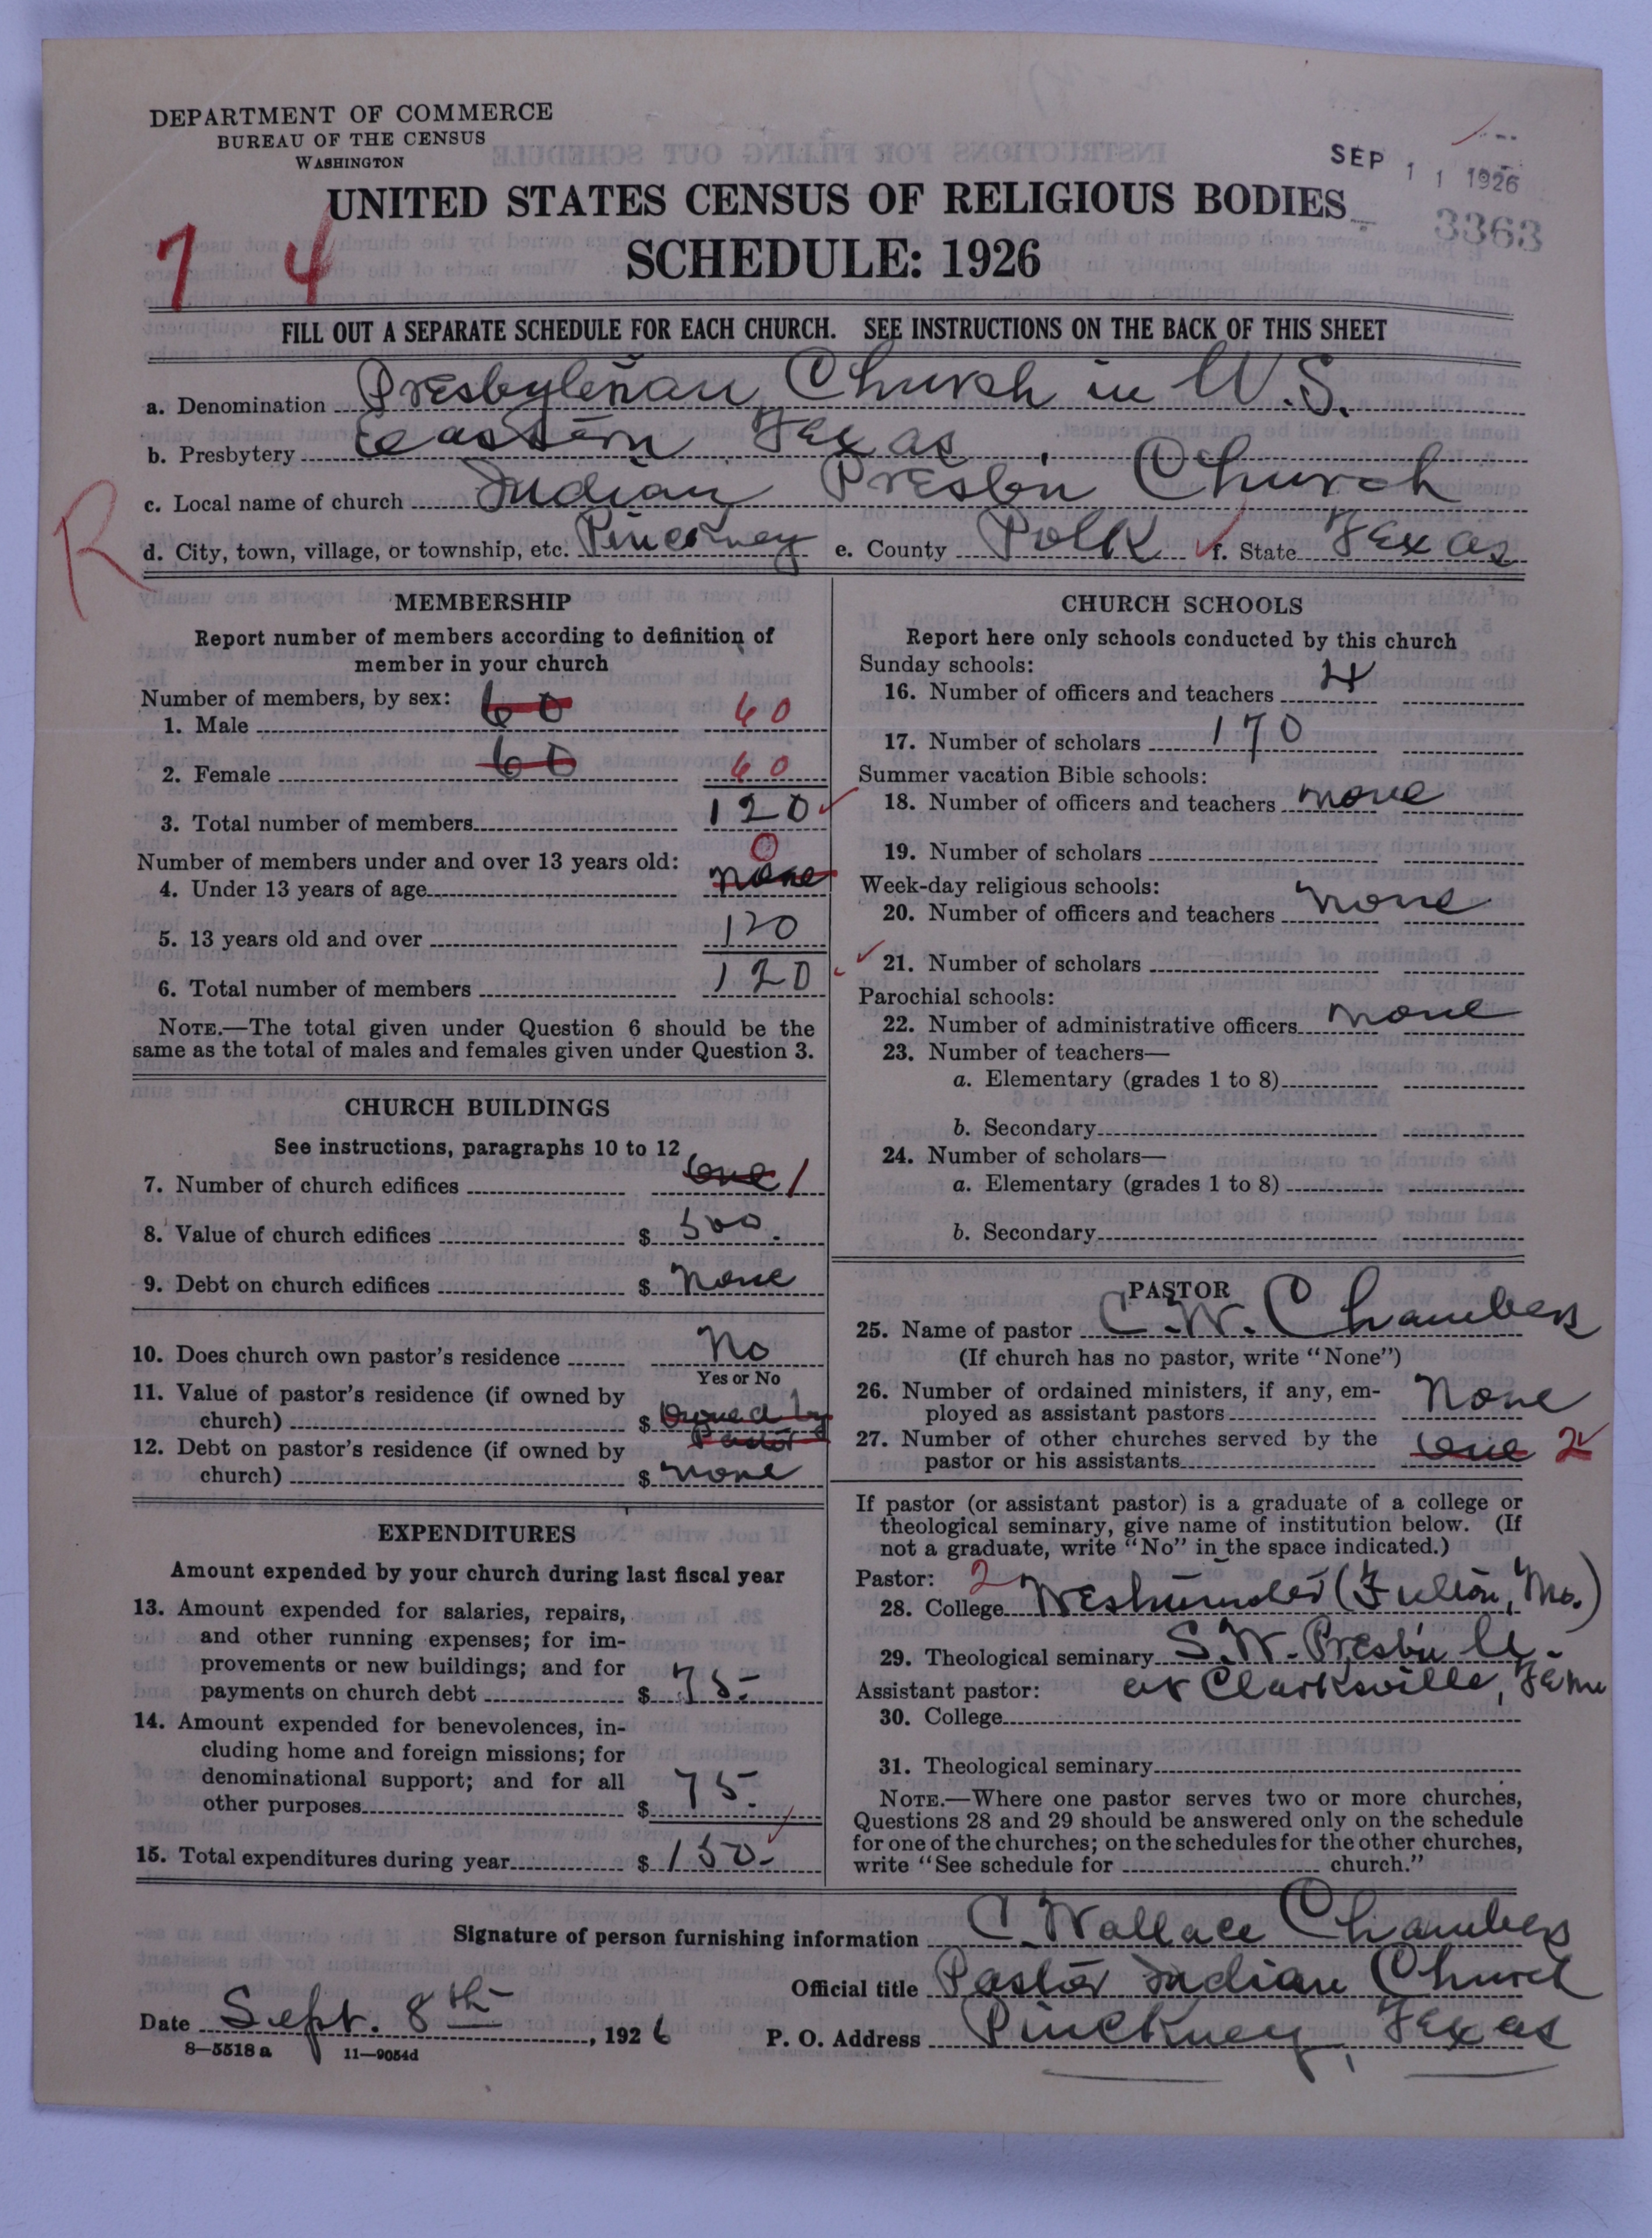 DEPARTMENT OF COMMERCE
BUREAU OF THE CENSUS
WASHINGTON
SEP 11 1926
UNITED STATES CENSUS OF RELIGIOUS BODIES
3363
7 4
SCHEDULE: 1926
FILL OUT A SEPARATE SCHEDULE FOR EACH CHURCH. SEE INSTRUCTIONS ON THE BACK OF THIS SHEET
a. Denomination Presbyterian Church in U.S.
b. Presbytery Eastern Texas
c. Local name of church Indian Presbn Church
R
d. City, town, village, or township, etc. Pinckney e. County Polk f. State Texas
MEMBERSHIP
Report number of members according to definition of
member in your church
Number of members, by sex:
1. Male 60 60
2. Female 60 60
3. Total number of members 120
Number of members under and over 13 years old: 0
4. Under 13 years of age none
5. 13 years old and over 120
6. Total number of members 120
NOTE.—The total given under Question 6 should be the
same as the total of males and females given under Question 3.
CHURCH BUILDINGS
See instructions, paragraphs 10 to 12
7. Number of church edifices one 1
8. Value of church edifices $ 500.
9. Debt on church edifices $ none
10. Does church own pastor's residence No
Yes or No
11. Value of pastor's residence (if owned by
church) $ Owned by
Pastor
12. Debt on pastor's residence (if owned by
church) $ none
EXPENDITURES
Amount expended by your church during last fiscal year
13. Amount expended for salaries, repairs,
and other running expenses; for im-
provements or new buildings; and for
payments on church debt $ 75-
14. Amount expended for benevolences, in-
cluding home and foreign missions; for
denominational support; and for all
other purposes $ 75-
15. Total expenditures during year $ 150-
CHURCH SCHOOLS
Report here only schools conducted by this church
Sunday schools:
16. Number of officers and teachers 4
17. Number of scholars 170
Summer vacation Bible schools:
18. Number of officers and teachers none
19. Number of scholars
Week-day religious schools:
20. Number of officers and teachers none
21. Number of scholars
Parochial schools:
22. Number of administrative officers none
23. Number of teachers—
a. Elementary (grades 1 to 8)
b. Secondary
24. Number of scholars—
a. Elementary (grades 1 to 8)
b. Secondary
PASTOR
25. Name of pastor C.W. Chambers
(If church has no pastor, write "None")
26. Number of ordained ministers, if any, em-
ployed as assistant pastors None
27. Number of other churches served by the
pastor or his assistants one 2
If pastor (or assistant pastor) is a graduate of a college or
theological seminary, give name of institution below. (If
not a graduate, write "No" in the space indicated.)
Pastor: 2
28. College Westminster (Fulton, Mo.)
29. Theological seminary S.W. Presbn U.
Assistant pastor: at Clarksville, Tenn
30. College
31. Theological seminary
NOTE.—Where one pastor serves two or more churches,
Questions 28 and 29 should be answered only on the schedule
for one of the churches; on the schedules for the other churches,
write "See schedule for church."
Signature of person furnishing information C. Wallace Chambers
Official title Pastor Indian Church
Date Sept. 8th, 1926 P. O. Address Pinckney, Texas
8—5518 a 11—9054d